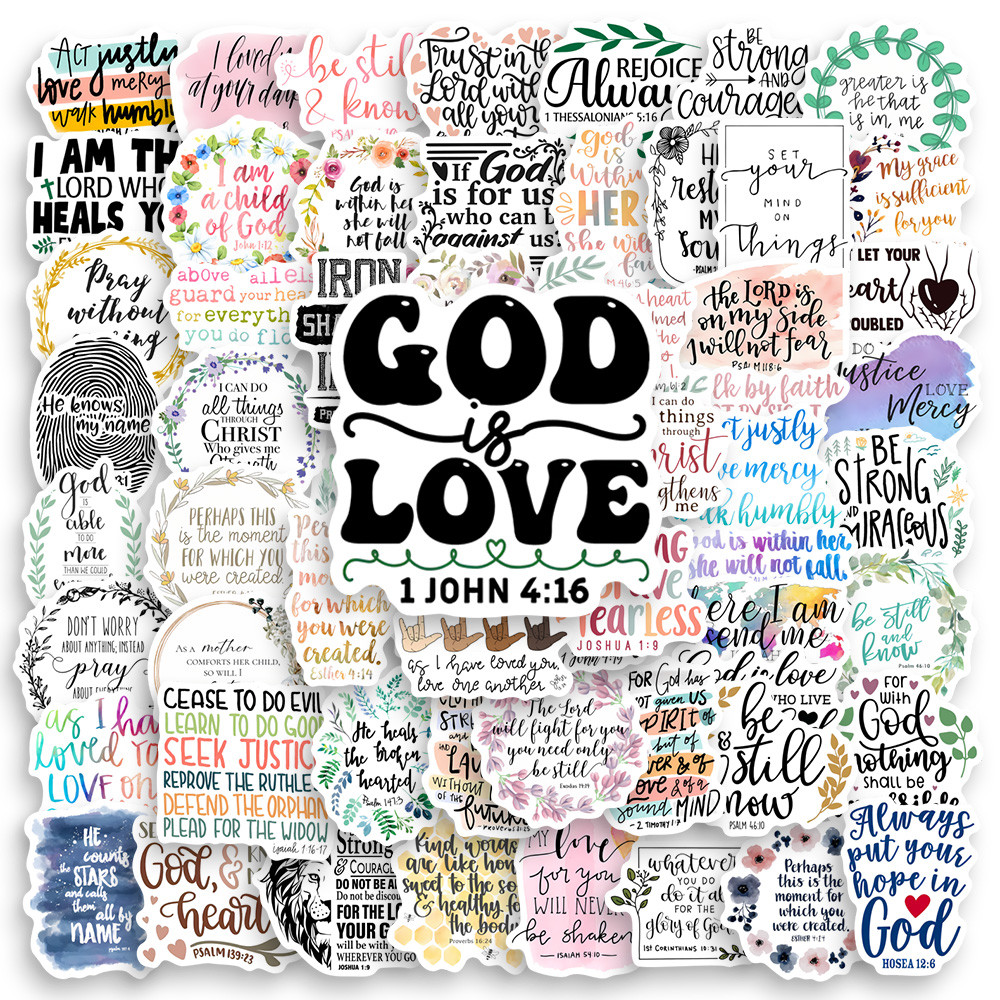 ACT justly
love mercy
walk humbly
I loved
at your
be stil
& know
Trust in t
Lord with
all your
REJOICE
Alwa
1 THESSALONIANS 5:16
BE
strong
AND
Courage
greater is
he that
is in me
I AM TH
LORD WHO
HEALS YO
I am
a child
of God
John 1:12
God is
within her
she will
not fall
If God
is for us
who can b
against us
God
is
within
HER
she will
fai
M 46:5
H
rest
MY
Sou
PSALM
SET
your
MIND
ON
Things
My grace
is sufficient
for you
Pray
without
above all els
guard your hea
for everyth
you do flo
IRON
SHA
I
the LORD is
on my side
I will not fear
PSALM 118:6
LET YOUR
eart
OUBLED
He knows
my name
I CAN DO
all things
THROUGH
CHRIST
Who gives me
GOD
is
LOVE
1 JOHN 4:16
heart
the
I can do
things
through
rist
gthens
me
lk by faith
t justly
ve mercy
lk humbly
DO
ustice
LOVE
Mercy
BE
STRONG
AND
God
IS
able
TO DO
more
THAN WE COULD
PERHAPS THIS
is the moment
FOR WHICH YOU
were created.
Per
this
mo
for which
you were
created.
Esther 4:14
God is within her,
she will not fall.
BE
STRONG
AND
MIRACEOUS
DON'T WORRY
ABOUT ANYTHING, INSTEAD
pray
ABOUT EVERYTHING
As a mother
COMFORTS HER CHILD,
SO WILL I
as I have loved you,
love one another.
fearless
JOSHUA 1:9
ere I am
end me
be still
and
know
Psalm 46:10
as I ha
loved yo
LOVE on
CEASE TO DO EVIL
LEARN TO DO GOO
SEEK JUSTIC
REPROVE THE RUTHLE
DEFEND THE ORPHAN
PLEAD FOR THE WIDOW
Isaiah 1:16-17
He heals
the broken
hearted
Psalm 147:3
STR
and
LAU
WITHOUT
OF THE
futur
PROVERBS 31:25
The Lord
will fight for you
you need only
be still
Exodus 14:14
FOR God has
not given US
SPIRIT of
but of
sound MIND
2 TIMOTHY 1:7
WHO LIVE
be
& still
now
PSALM 46:10
FOR
with
God
nothing
shall be
HE
counts
the STARS
and calls
them all by
NAME
God, &
heart
PSALM 139:23
Strong
& COURAG
DO NOT BE A
Do not be discou
FOR THE LO
YOUR G
will be with
WHEREVER YOU GO
JOSHUA 1:9
Kind words
are like hon
sweet to the so
& healthy fo
the body
Proverbs 16:24
MY love
for you
WILL NEVER
be shaken
ISAIAH 54:10
whatever
YOU DO
do it al
FOR THE
glory of Go
1ST CORINTHIANS 10:31
Perhaps
this is the
moment for
which you
were created.
ESTHER 4:14
Always
put your
hope in
God
HOSEA 12:6